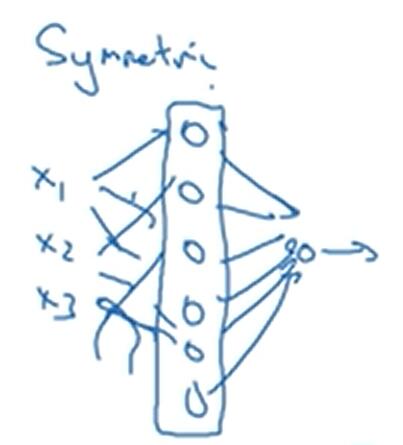 Symmetric
x1
x2
x3